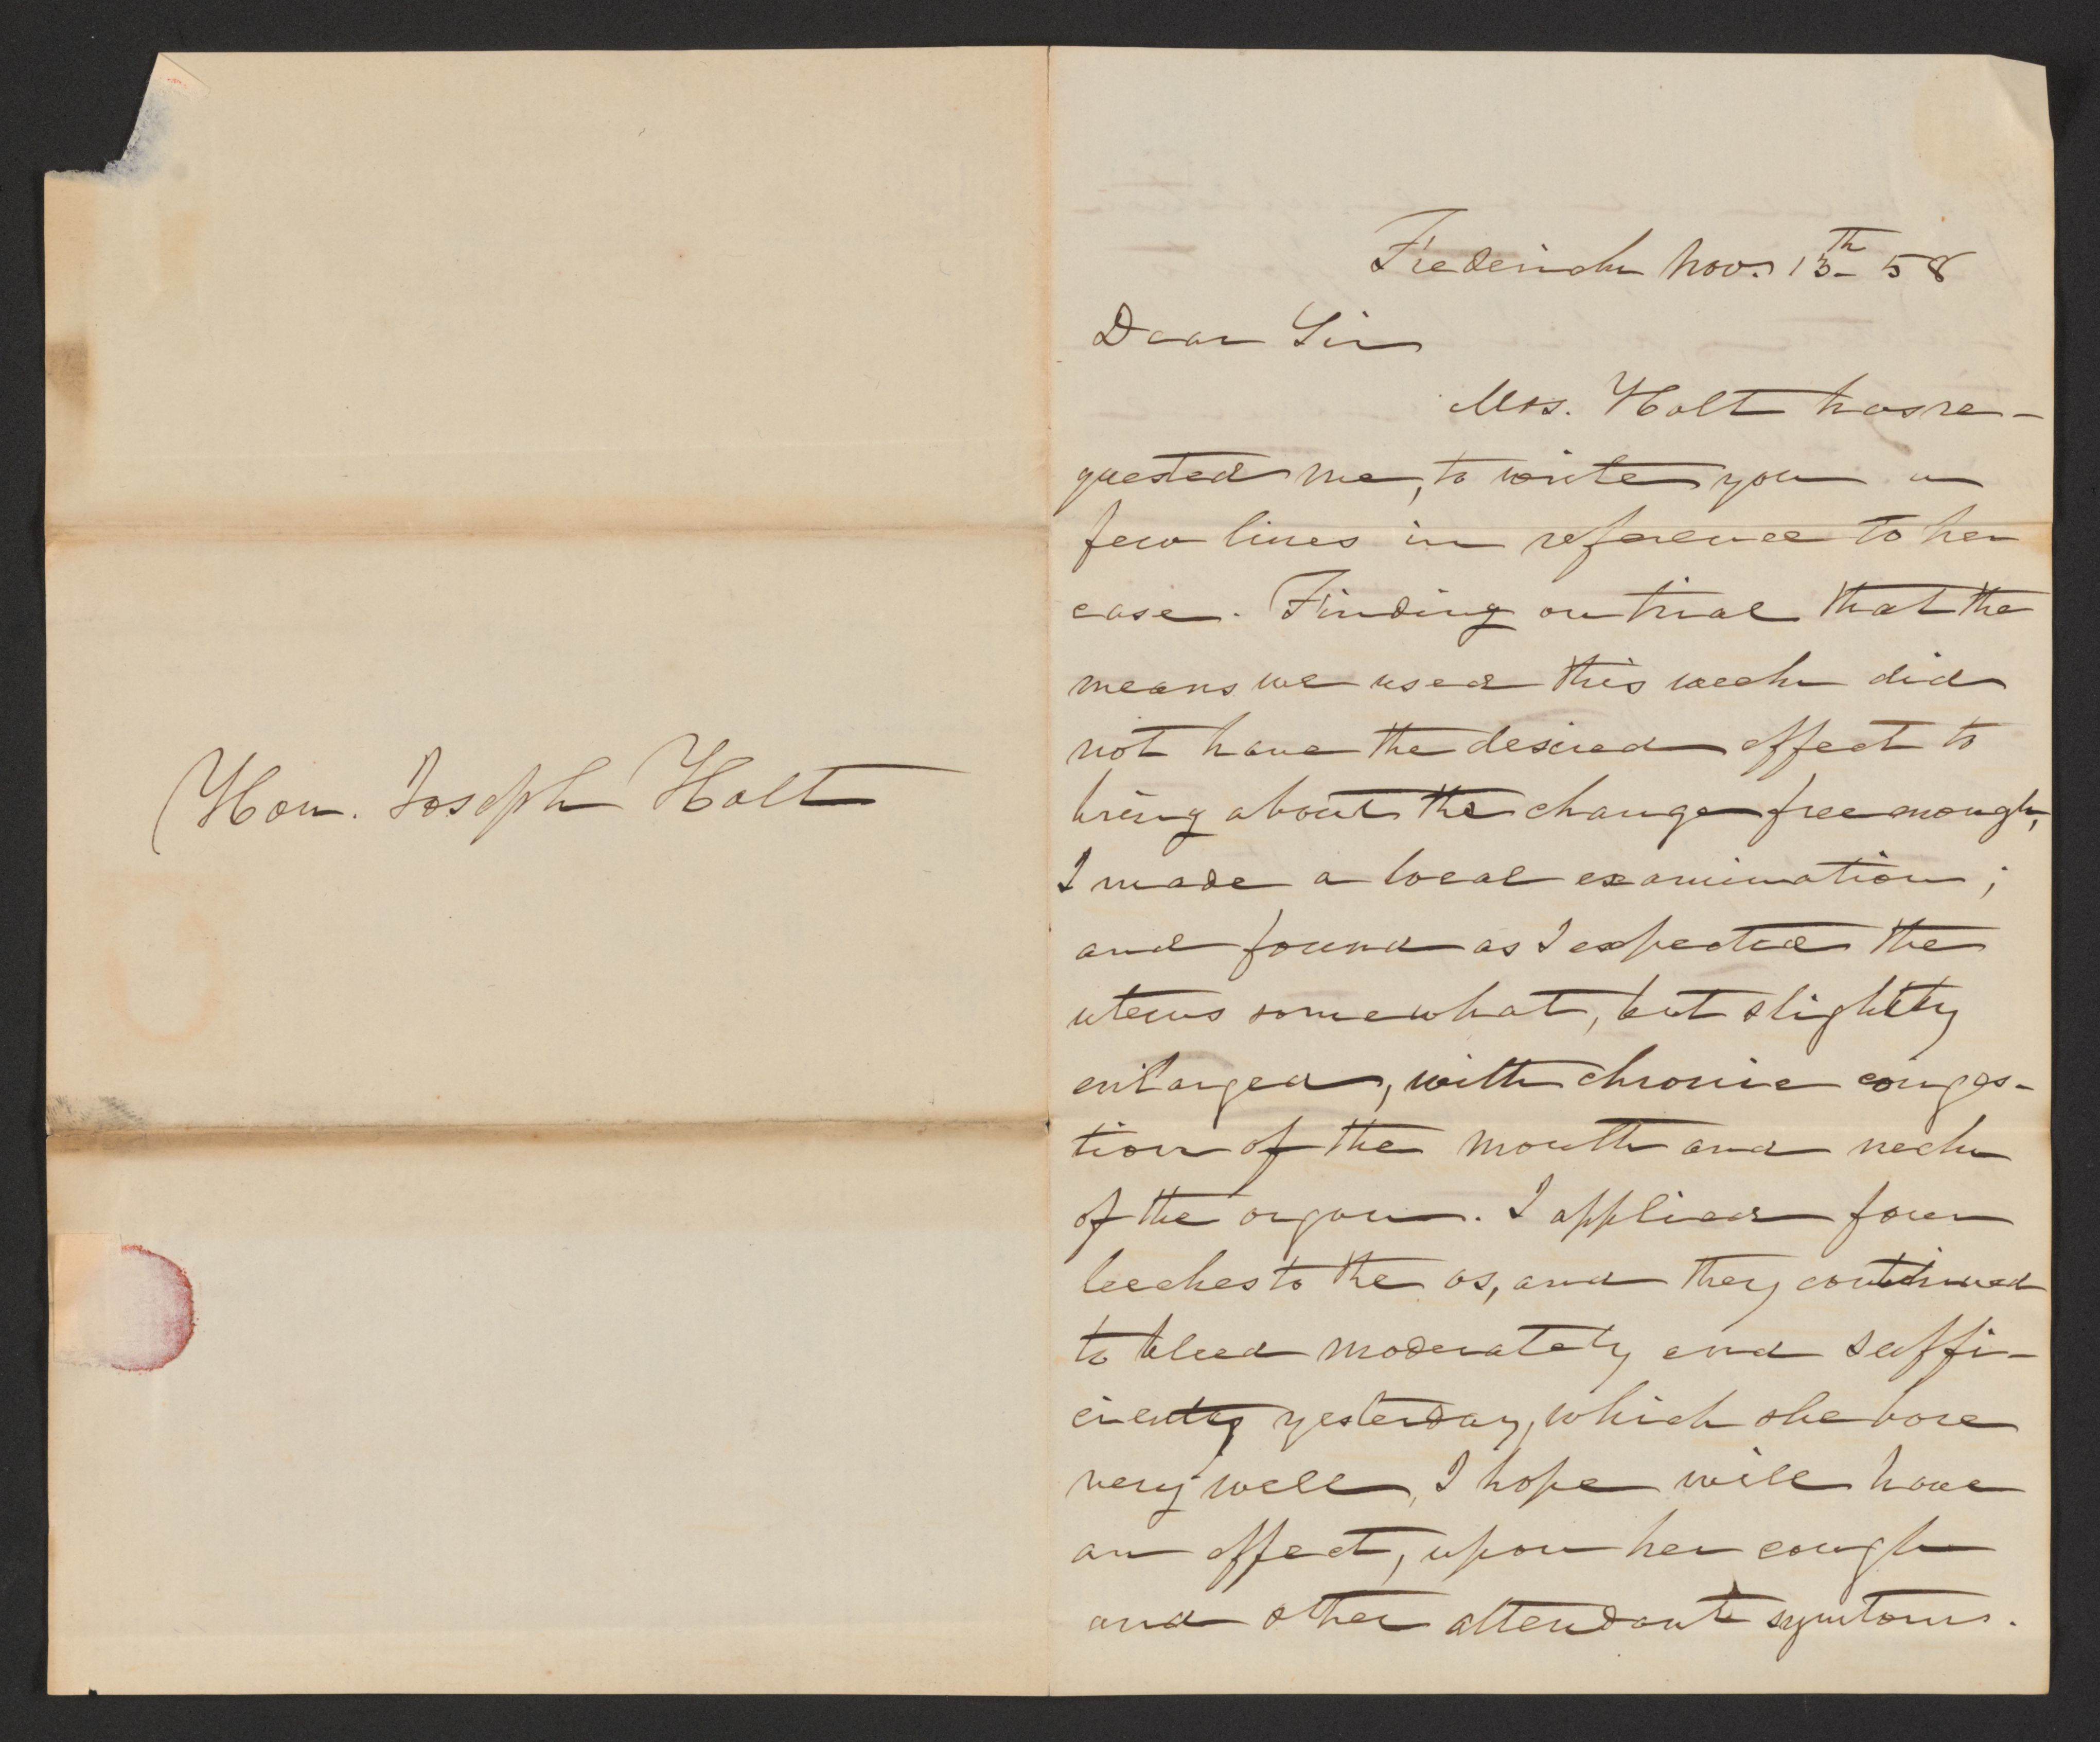 Hon. Joseph Holt
Frederick Nov. 13th 58
Dear Sir
Mrs. Holt has re-
quested me, to write you a
few lines in reference to her
case. Finding on trial that the
means we used this week did
not have the desired effect to
bring about the change free enough,
I made a local examination;
and found as I expected the
uterus somewhat, but slightly
enlarged, with chronic conges-
tion of the mouth and neck
of the organ. I applied four
leeches to the os, and they continued
to bleed moderately and suffi-
ciently yesterday, which she bore
very well, I hope will have
an effect, upon her cough
and other attendant symtoms.